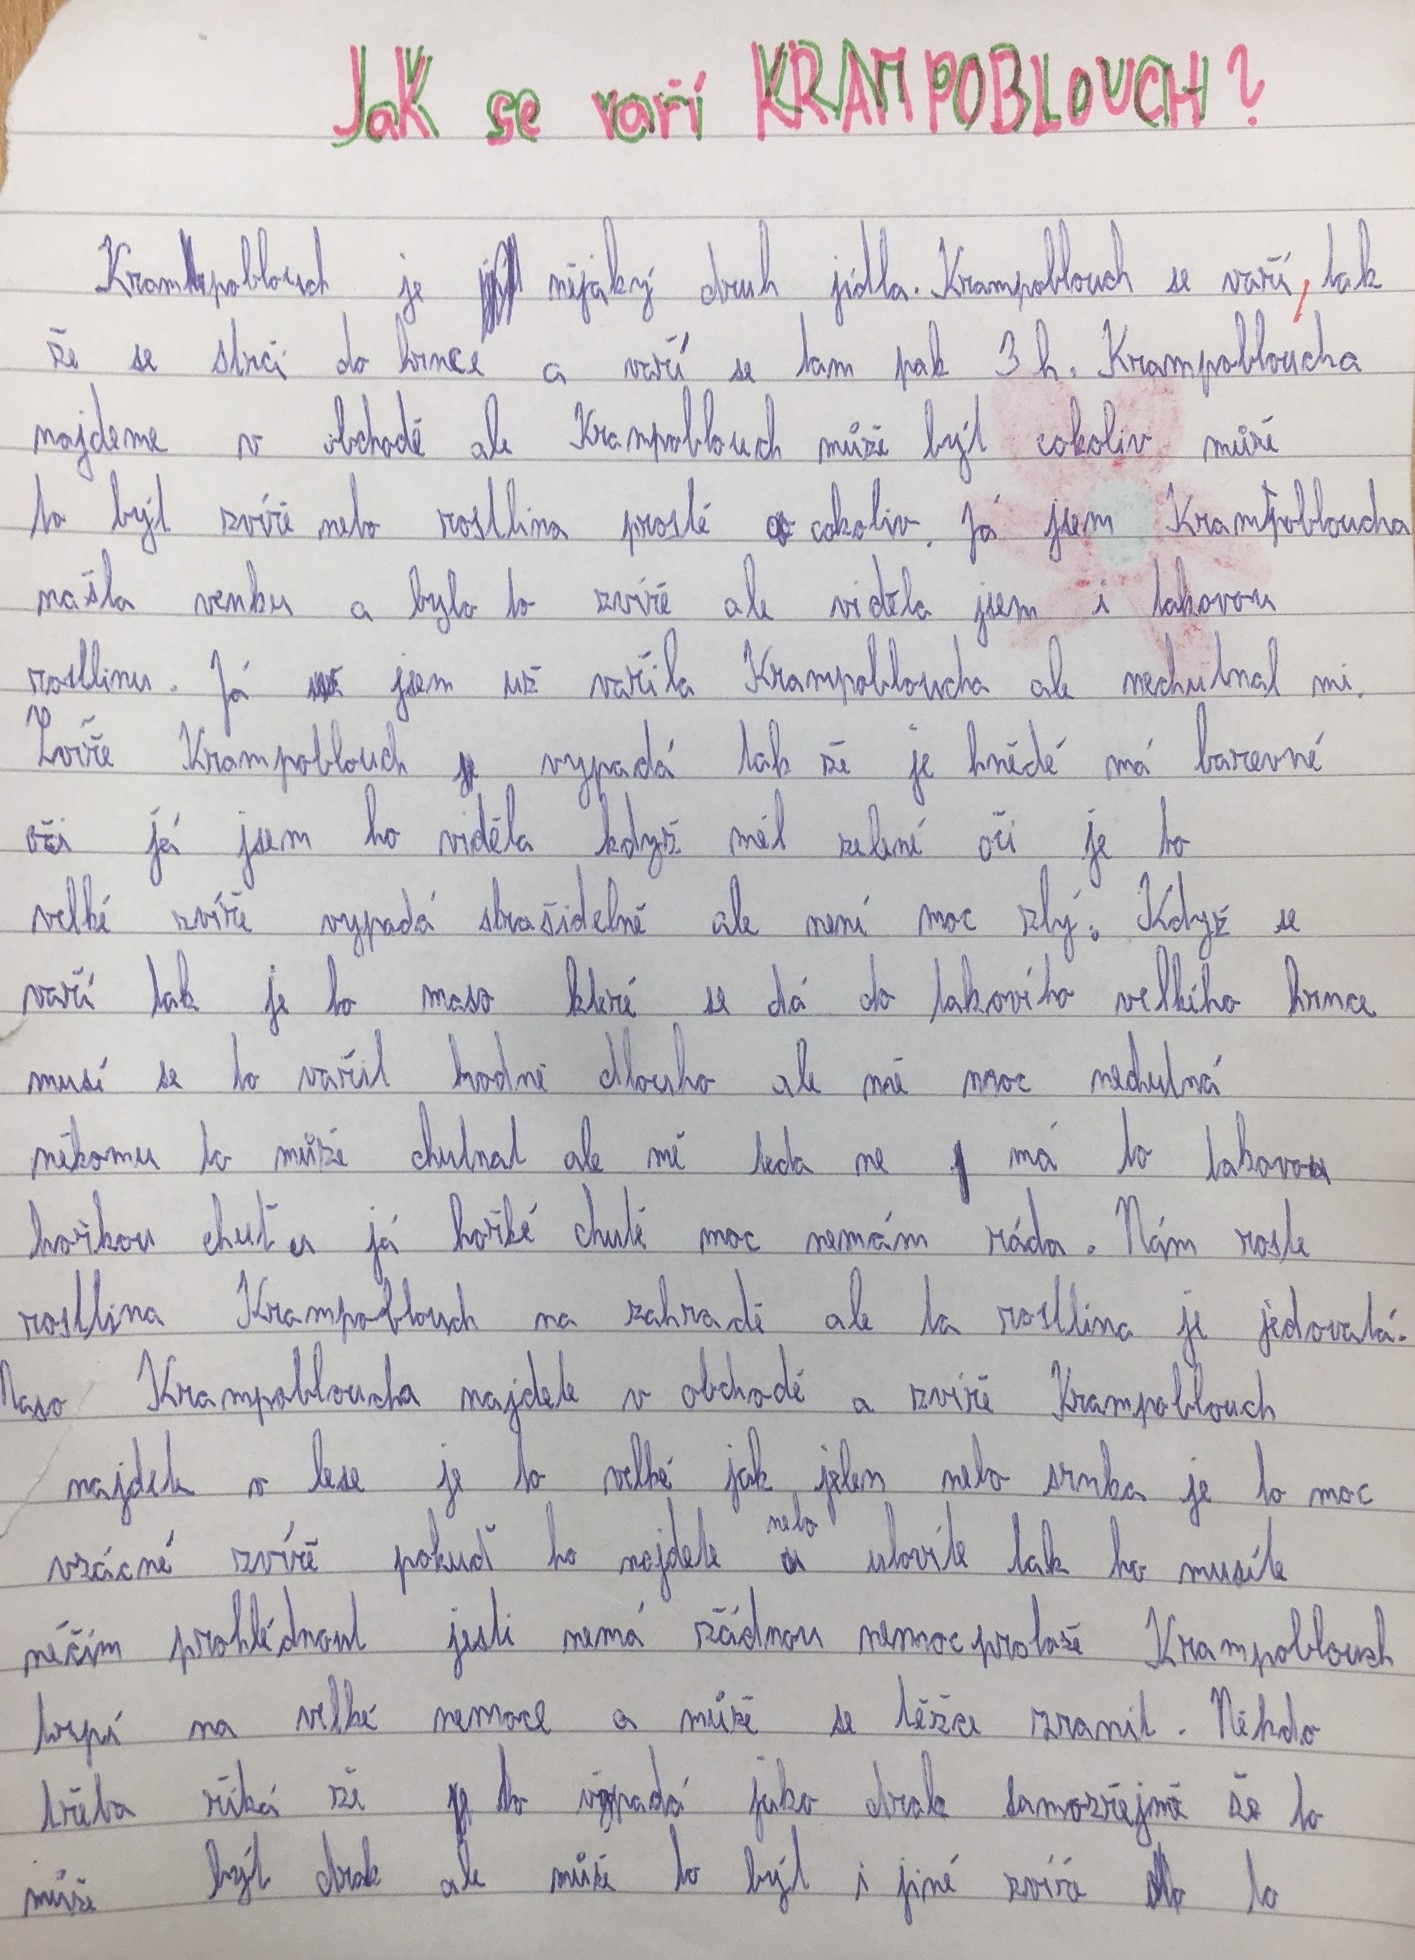 Jak se vaří KRAMPOBLOUCH?
Krampoblouch je nějaký druh jídla. Krampoblouch se vaří, tak
že se strčí do hrnce a vaří se tam pak 3 h. Krampobloucha
najdeme v obchodě ale Krampoblouch může být cokoliv může
to být zvíře nebo rostlina prostě cokoliv. Já jsem Krampobloucha
našla venku a bylo to zvíře ale viděla jsem i takovou
rostlinu. Já jsem už vařila Krampobloucha ale nechutnal mi.
Zvíře Krampoblouch vypadá tak že je hnědé má barevné
oči já jsem ho viděla když měl zelené oči je to
velké zvíře vypadá strašidelně ale není moc zlý. Když se
vaří tak je to maso které se dá do takovího velkího hrnce
musí se to vařit hodně dlouho ale mě moc nechutná
někomu to může chutnat ale mě teda ne má to takovou
hořkou chuť a já hořké chutě moc nemám ráda. Nám roste
rostlina Krampoblouch na zahradě ale ta rostlina je jedovatá.
Maso Krampobloucha najdete v obchodě a zvíře Krampoblouch
najdete v lese je to velké jak jelen nebo srnka je to moc
vzácné zvíře pokuď ho najdete nebo ulovíte tak ho musíte
něčím prohlédnout jestli nemá žádnou nemoc protože Krampoblouch
trpí na velké nemoce a může se těžce zranit. Někdo
třeba říká že to vypadá jako drak samozřejmě že to
může být drak ale může to být i jiné zvíře to